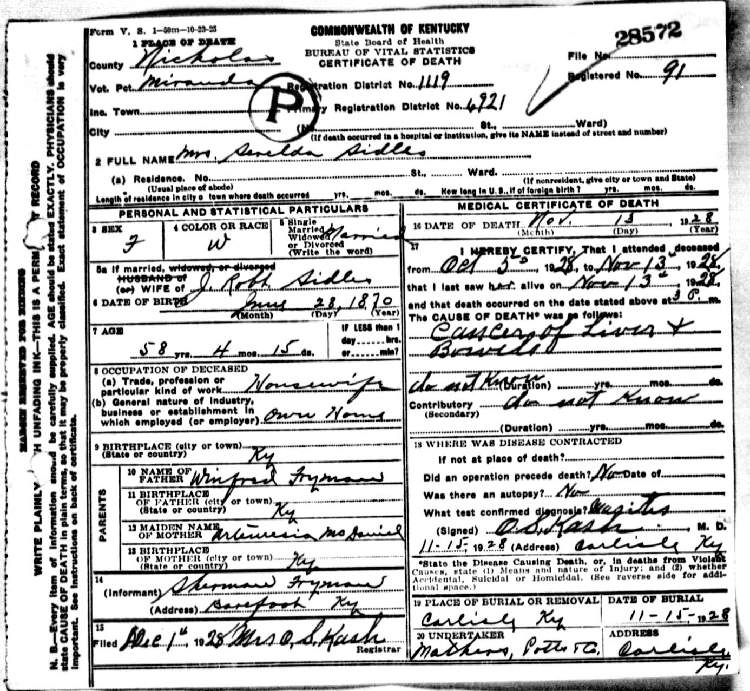 Form V. S. 1-50m-10-23-25
COMMONWEALTH OF KENTUCKY
State Board of Health
BUREAU OF VITAL STATISTICS
CERTIFICATE OF DEATH
28572
File No.
Registered No. 91
1 PLACE OF DEATH
County Nicholas
Vot. Pct. Miranda Registration District No. 1119
Inc. Town Primary Registration District No. 6921
P
City (No. St., Ward)
(If death occurred in a hospital or institution, give its NAME instead of street and number)
2 FULL NAME Mrs Serelda Sidles
(a) Residence. No. St., Ward.
(Usual place of abode) (If nonresident, give city or town and State)
Length of residence in city or town where death occurred yrs. mos. ds. How long in U. S., if of foreign birth? yrs. mos. ds.
PERSONAL AND STATISTICAL PARTICULARS
3 SEX F
4 COLOR OR RACE W
5 Single Married Widowed or Divorced (Write the word) Married
5a If married, widowed, or divorced
HUSBAND of
(or) WIFE of J. Robt Sidles
6 DATE OF BIRTH 28, 1870
(Month) (Day) (Year)
7 AGE
58 yrs. 4 mos. 15 ds.
If LESS than 1 day hrs. or min?
8 OCCUPATION OF DECEASED
(a) Trade, profession or particular kind of work Housewife
(b) General nature of Industry, business or establishment in which employed (or employer) Own Home
9 BIRTHPLACE (city or town)
(State or country) Ky
PARENTS
10 NAME OF FATHER Winfred Fryman
11 BIRTHPLACE OF FATHER (city or town)
(State or country) Ky
12 MAIDEN NAME OF MOTHER Artemesia McDaniel
13 BIRTHPLACE OF MOTHER (city or town)
(State or country) Ky
14
(Informant) Sherman Fryman
(Address) Barefoot Ky
15
Filed Dec 1st, 1928 Mrs O. S. Kash
Registrar
MEDICAL CERTIFICATE OF DEATH
16 DATE OF DEATH Nov. 13 1928
(Month) (Day) (Year)
17
I HEREBY CERTIFY, That I attended deceased
from Oct 5th, 1928, to Nov 13th, 1928,
that I last saw her alive on Nov 13th, 1928,
and that death occurred on the date stated above at 3 P. m.
The CAUSE OF DEATH* was as follows:
Cancer of Liver &
Bowels
do not Know (Duration) yrs. mos. ds.
Contributory do not Know
(Secondary)
(Duration) yrs. mos. ds.
18 WHERE WAS DISEASE CONTRACTED
If not at place of death?
Did an operation precede death? No Date of
Was there an autopsy? No
What test confirmed diagnosis?
(Signed) O. S. Kash M. D.
11-15, 1928 (Address) Carlisle Ky
*State the Disease Causing Death, or, in deaths from Violent Causes, state (1) Means and nature of Injury; and (2) whether Accidental, Suicidal or Homicidal. (See reverse side for additional space.)
19 PLACE OF BURIAL OR REMOVAL
Carlisle Ky
DATE OF BURIAL
11-15-1928
20 UNDERTAKER
Mathers, Potts & Co.
ADDRESS
Carlisle Ky.
MARGIN RESERVED FOR BINDING
WRITE PLAINLY WITH UNFADING INK—THIS IS A PERM RECORD
N. B.—Every item of information should be carefully supplied. AGE should be stated EXACTLY. PHYSICIANS should
state CAUSE OF DEATH in plain terms, so that it may be properly classified. Exact statement of OCCUPATION is very
important. See instructions on back of certificate.